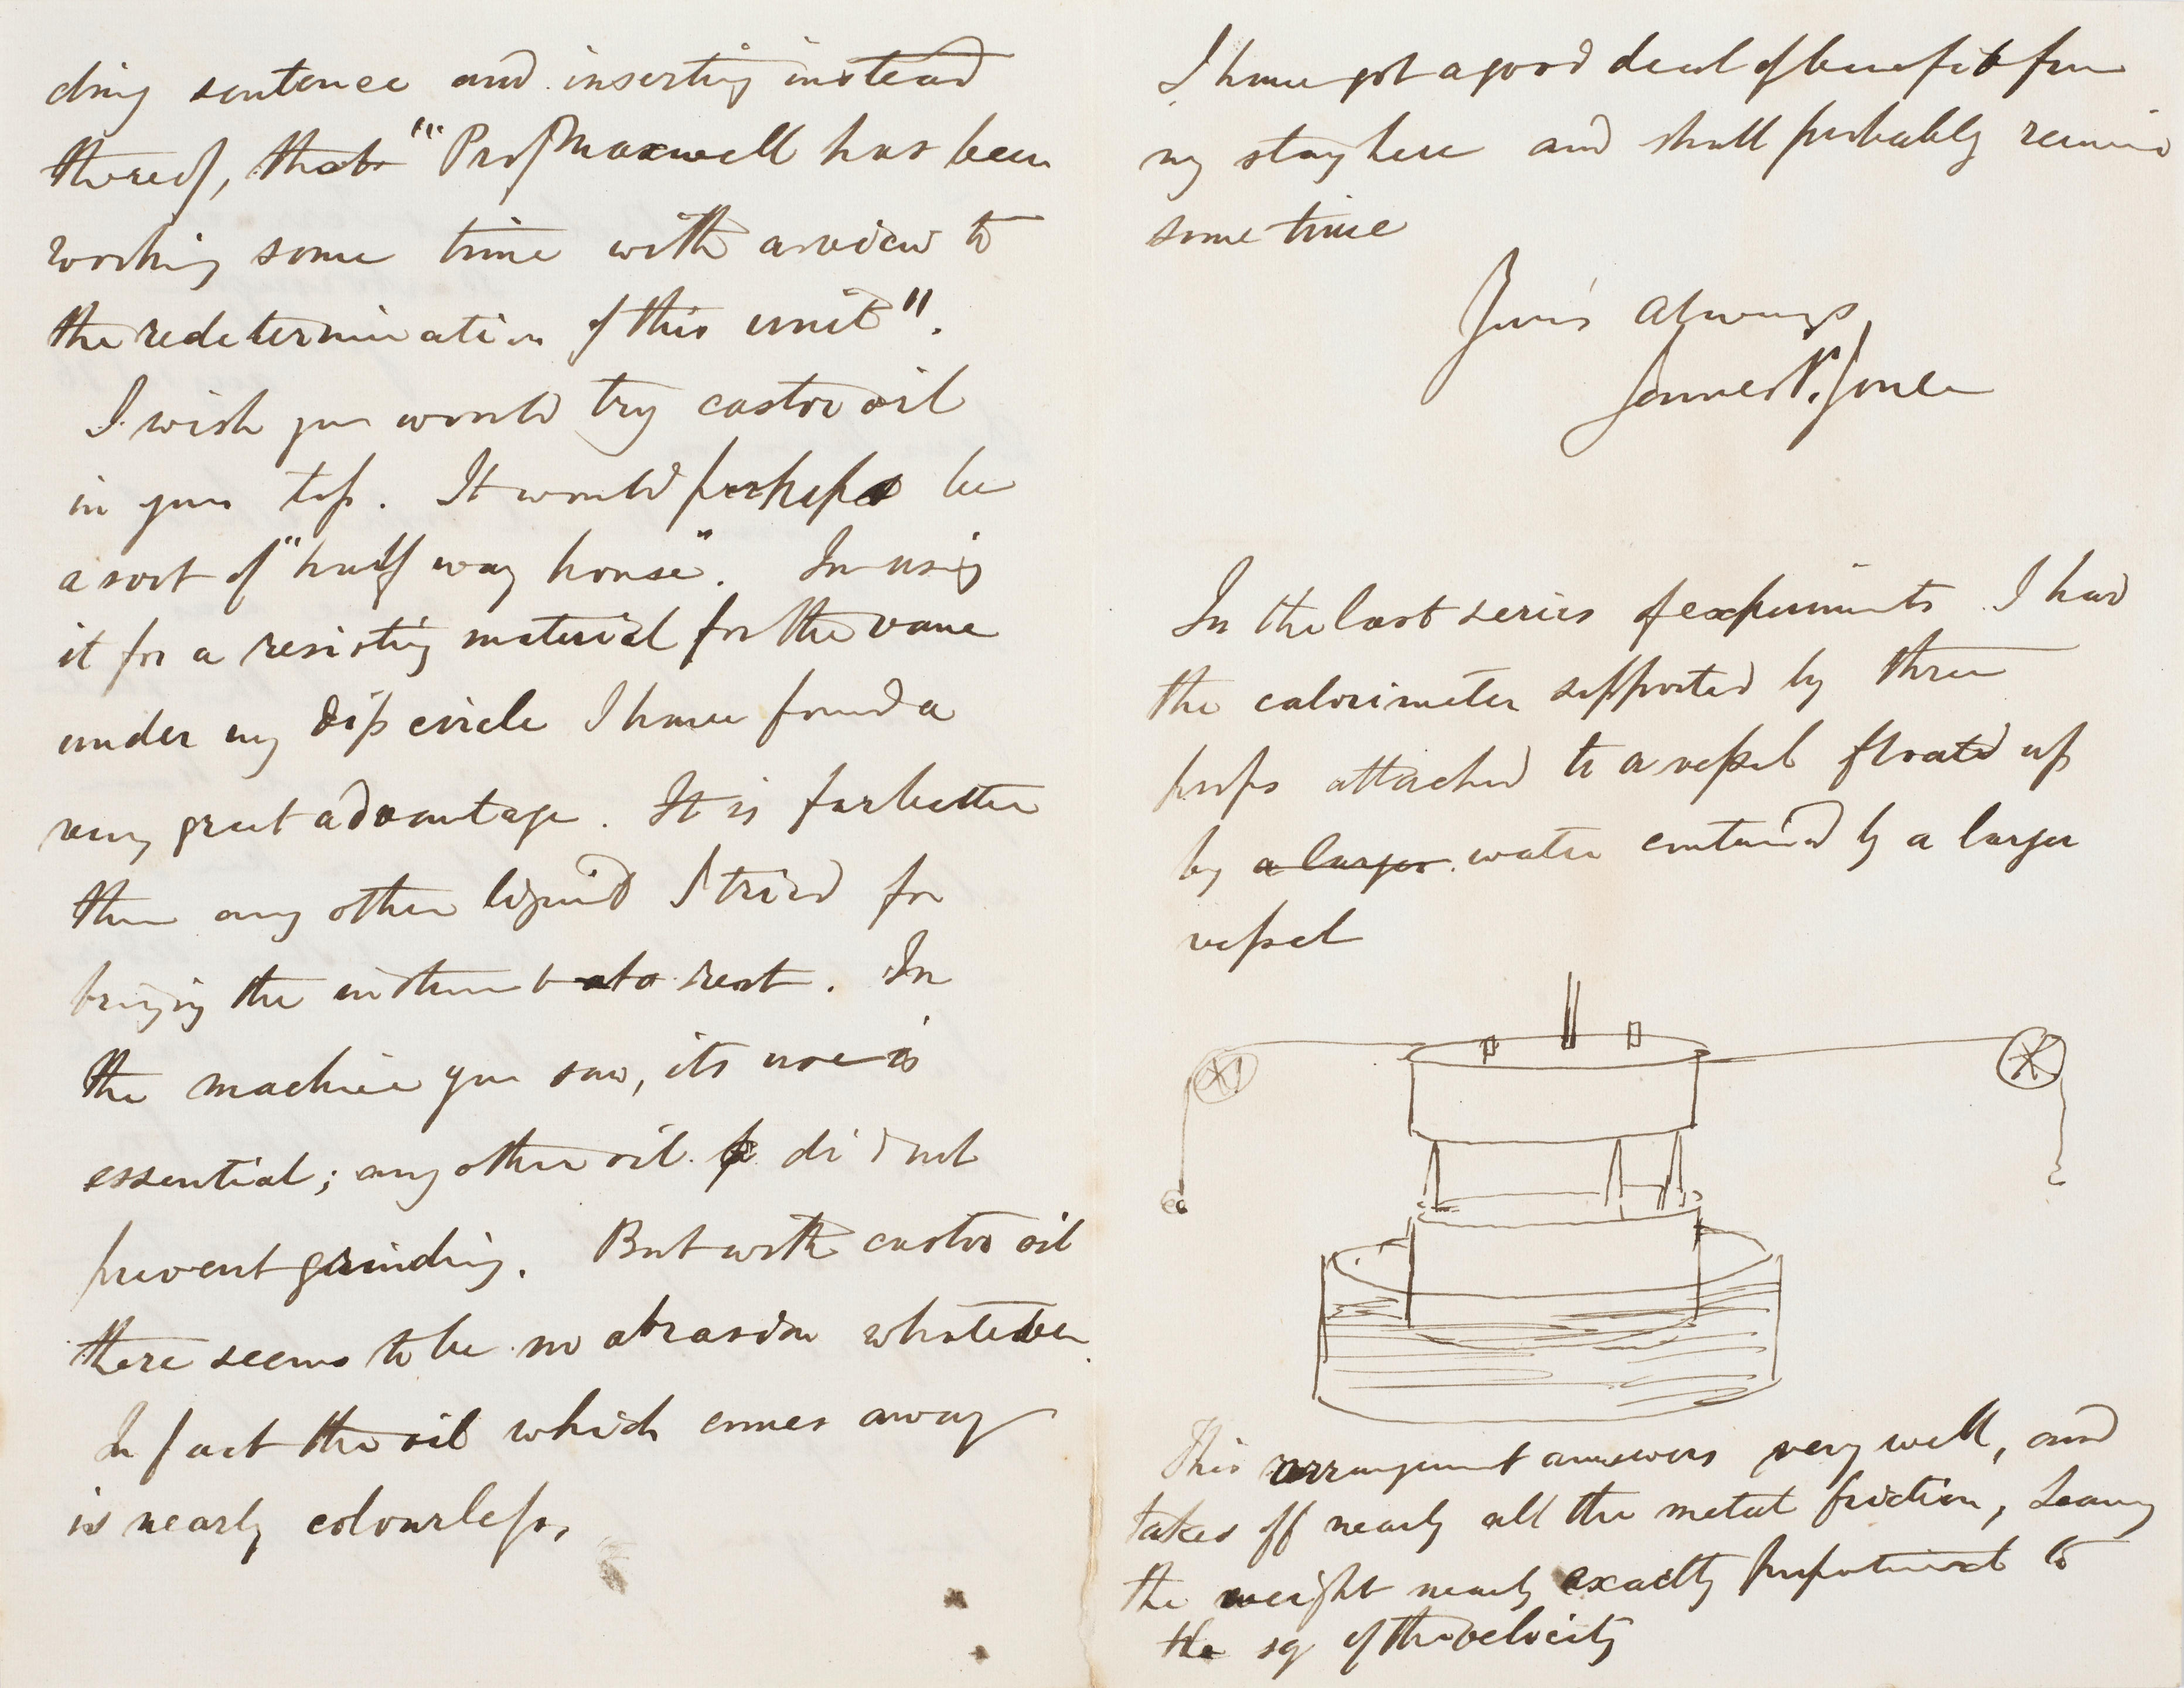 ding sentence and inserting instead
thereof, that "" Prof Maxwell has been
working some time with a view to
the redetermination of this unit".
I wish you would try castor oil
in your top. It would perhaps be
a sort of "half way house". In using
it for a resisting material for the vane
under my dip circle I have found a
very great advantage. It is far better
than any other liquid I tried for
bringing the instrument to rest. In
the machine you saw, its use is
essential; any other oil did not
prevent grinding. But with castor oil
there seems to be no abrasion whatever.
In fact the oil which comes away
is nearly colourless,
I have got a good deal of benefit from
my stay here and shall probably remain
some time
Yours always
James P. Joule
In the last series of experiments I had
the calorimeter supported by three
props attached to a vessel floated up
by a larger water contained by a larger
vessel
This arrangement answers very well, and
takes off nearly all the metal friction, leaving
the weight nearly exactly proportional to
the sq of the velocity